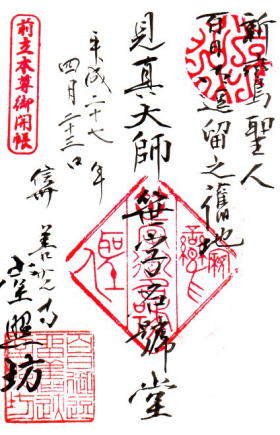 親鸞聖人
百日御逗留之舊地
見真大師 笹字名號堂
平成二十七年
四月二十三日
信州 善光寺
堂照坊
前立本尊御開帳